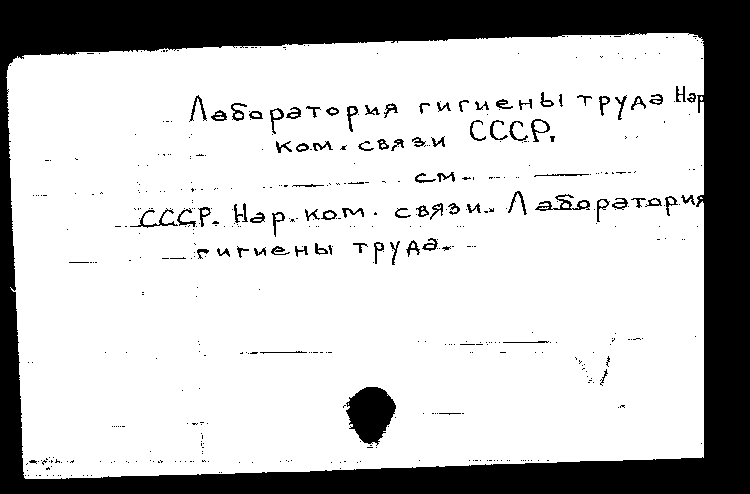 Лаборатория гигиены труда Нар
ком. связи СССР.
см.
СССР. Нар. ком. связи. Лаборатория
гигиены труда.